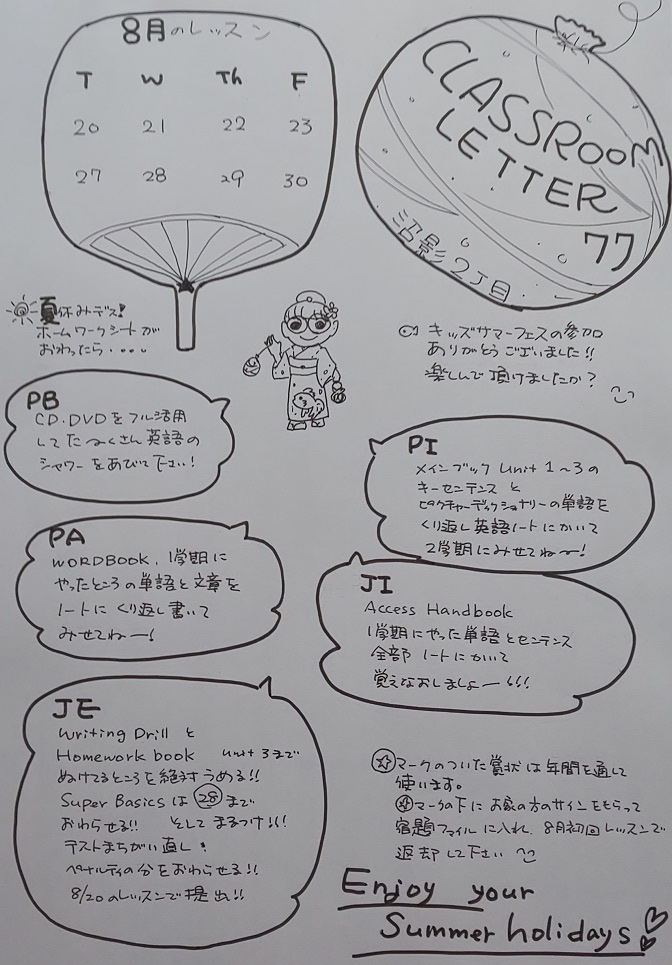 8月のレッスン
T W Th F
20 21 22 23
27 28 29 30
CLASSROOM
LETTER
77
沼影2丁目
夏休みデス!
ホームワークシートが
おわったら・・・・
キッズサマーフェスの参加
ありがとうございました!!
楽しんで頂けましたか?
PB
CD.DVDをフル活用
してたくさん英語の
シャワーをあびて下さい!
PI
メインブック unit 1〜3の
キーセンテンスと
ピクチャーディクショナリーの単語を
くり返し英語ノートにかいて
2学期にみせてねー!
PA
WORDBOOK, 1学期に
やったところの単語と文章を
ノートにくり返し書いて
みせてねー!
JI
Access Handbook
1学期にやった単語とセンテンス
全部ノートにかいて
覚えなおしましょー!!!
JE
Writing Drill と
Homework book unit 3まで
ぬけてるところを絶対うめる!!
Super Basicsは 28 まで
おわらせる!! そしてまるつけ!!!
テストまちがい直し!
ペナルティの分をおわらせる!!
8/20のレッスンで提出!!
マークのついた賞状は年間を通して
使います。
マークの下にお家の方のサインをもらって
宿題ファイルに入れ、8月初回レッスンで
返却して下さい
Enjoy your
Summer holidays!